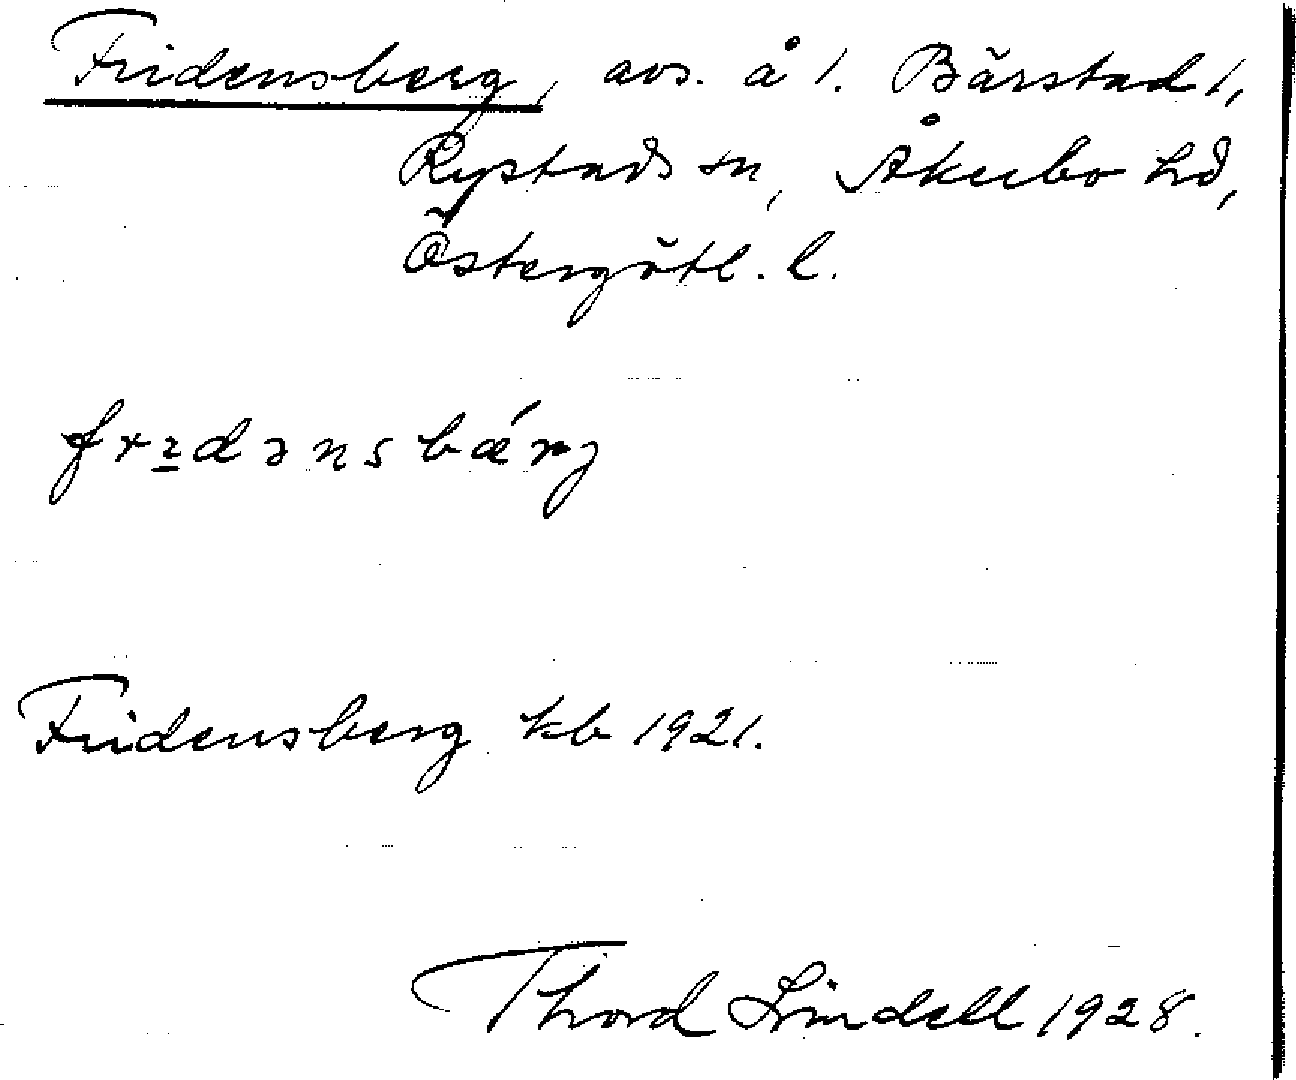 Fridensberg, avs. å 1. Bärstad 1,
Rystads sn, Åkerbo hd,
Östergötl. l.
fridənsbárj
Fridensberg kb 1921.
Thord Lindell 1928.